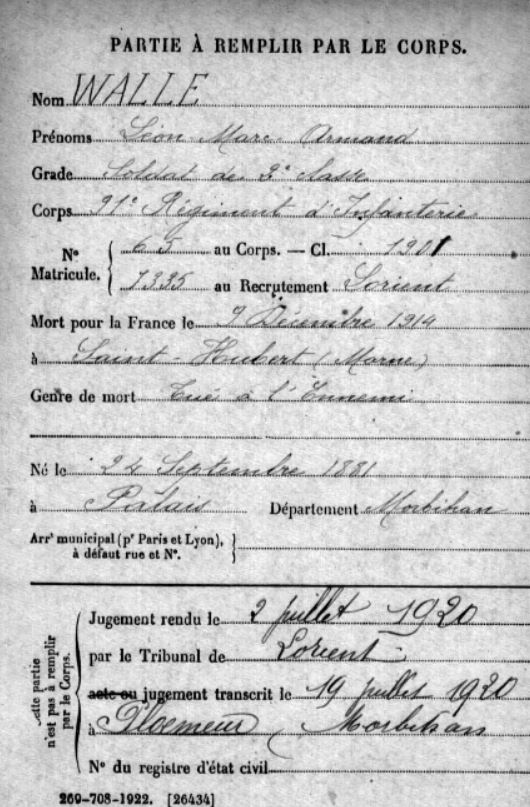 PARTIE À REMPLIR PAR LE CORPS.
Nom WALLE
Prénoms Léon Marc Armand
Grade Soldat de 2e classe
Corps 91e Régiment d'Infanterie
N° Matricule. 65 au Corps. — Cl. 1901
1335 au Recrutement Lorient
Mort pour la France le 9 Décembre 1914
à Saint-Hubert (Marne)
Genre de mort Tué à l'Ennemi
Né le 24 Septembre 1881
à Palais Département Morbihan
Arrt municipal (pr Paris et Lyon), à défaut rue et N°.
Cette partie n'est pas à remplir par le Corps.
Jugement rendu le 2 juillet 1920
par le Tribunal de Lorient
acte ou jugement transcrit le 19 juillet 1920
à Ploemeur (Morbihan
N° du registre d'état civil
269-708-1922. [26434]